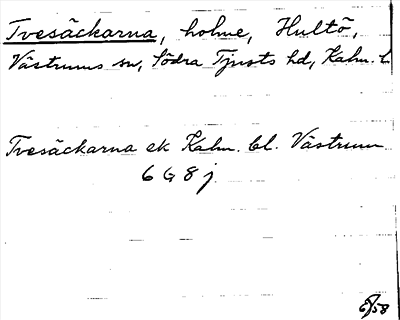 Tvesäckarna, holme, Hultö,
Västrums sn, Södra Tjusts hd, Kalm. l.
Tvesäckarna ek Kalm. bl. Västrum
6 G 8 j